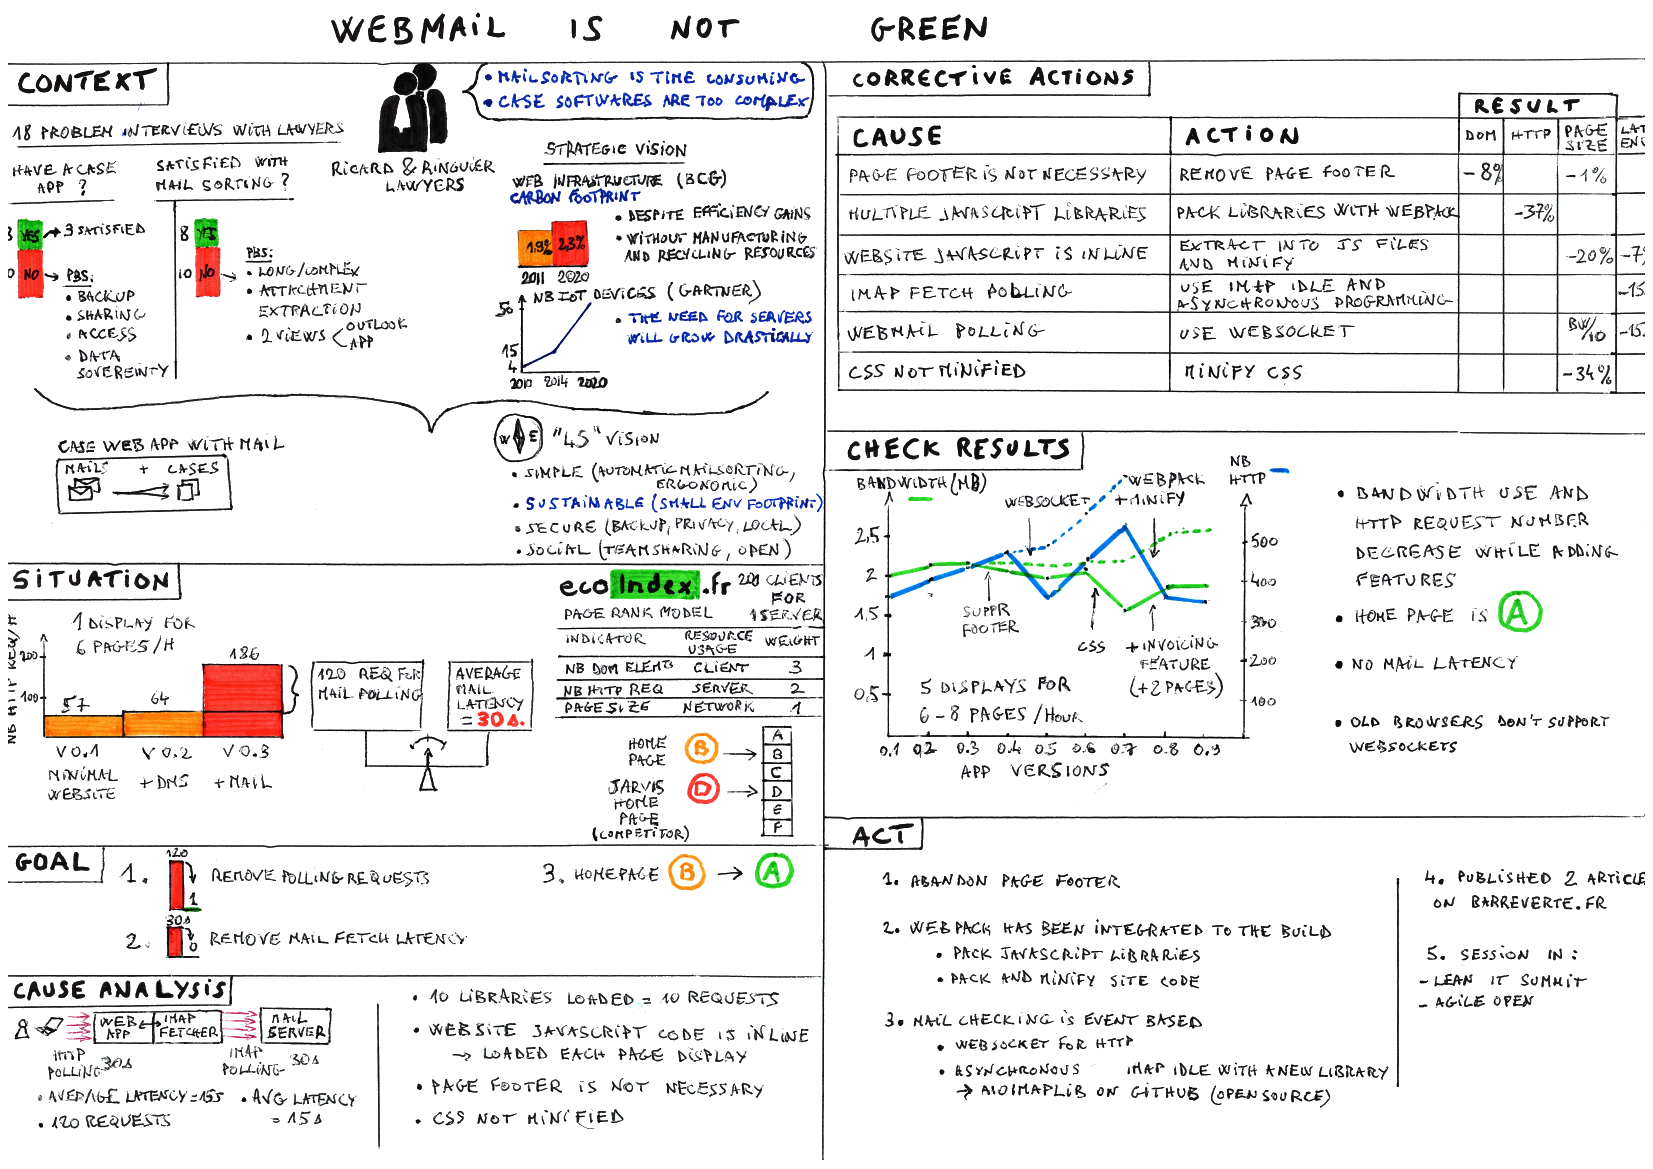 WEBMAIL IS NOT GREEN
CONTEXT
18 PROBLEM INTERVIEWS WITH LAWYERS
HAVE A CASE
APP ?
YES
3 SATISFIED
NO
PBS:
• BACKUP
• SHARING
• ACCESS
• DATA
SOVEREINTY
SATISFIED WITH
MAIL SORTING ?
8 YES
10 NO
PBS:
• LONG/COMPLEX
• ATTACHMENT
EXTRACTION
• 2 VIEWS < OUTLOOK
APP
RICARD & RINGUIER
LAWYERS
• MAILSORTING IS TIME CONSUMING
• CASE SOFTWARES ARE TOO COMPLEX
STRATEGIC VISION
WEB INFRASTRUCTURE (BCG)
CARBON FOOTPRINT
1.9% 2,3%
2011 2020
• DESPITE EFFICIENCY GAINS
• WITHOUT MANUFACTURING
AND RECYCLING RESOURCES
NB IOT DEVICES (GARTNER)
50
15
4
2010 2014 2020
• THE NEED FOR SERVERS
WILL GROW DRASTICALLY
CASE WEB APP WITH MAIL
MAILS + CASES
W E
"4S" VISION
• SIMPLE (AUTOMATIC MAILSORTING,
ERGONOMIC)
• SUSTAINABLE (SMALL ENV FOOTPRINT)
• SECURE (BACKUP, PRIVACY, LOCAL)
• SOCIAL (TEAMSHARING, OPEN)
SITUATION
NB HTTP REQ/H
200
100
1 DISPLAY FOR
6 PAGES/H
57
64
186
V0.1 V0.2 V0.3
MINIMAL
WEBSITE
+DMS
+MAIL
120 REQ FOR
MAIL POLLING
AVERAGE
MAIL
LATENCY
= 30s.
ecoIndex.fr
200 CLIENTS
FOR
1 SERVER
PAGE RANK MODEL
INDICATOR RESOURCE USAGE WEIGHT
NB DOM ELEMTS CLIENT 3
NB HTTP REQ SERVER 2
PAGE SIZE NETWORK 1
HOME
PAGE
B
JARVIS
HOME
PAGE
(COMPETITOR)
D
A
B
C
D
E
F
GOAL
1.
120
1
REMOVE POLLING REQUESTS
2.
30s
0
REMOVE MAIL FETCH LATENCY
3. HOMEPAGE B → A
CAUSE ANALYSIS
WEB
APP
IMAP
FETCHER
MAIL
SERVER
HTTP
POLLING 30s
IMAP
POLLING 30s
• AVERAGE LATENCY = 15s
• 120 REQUESTS
• AVG LATENCY
= 15s
• 10 LIBRARIES LOADED = 10 REQUESTS
• WEBSITE JAVASCRIPT CODE IS INLINE
→ LOADED EACH PAGE DISPLAY
• PAGE FOOTER IS NOT NECESSARY
• CSS NOT MINIFIED
CORRECTIVE ACTIONS
RESULT
CAUSE ACTION DOM HTTP PAGE SIZE
PAGE FOOTER IS NOT NECESSARY REMOVE PAGE FOOTER -8% -1%
MULTIPLE JAVASCRIPT LIBRARIES PACK LIBRARIES WITH WEBPACK -37%
WEBSITE JAVASCRIPT IS INLINE EXTRACT INTO JS FILES AND MINIFY -20%
IMAP FETCH POLLING USE IMAP IDLE AND ASYNCHRONOUS PROGRAMMING
WEBMAIL POLLING USE WEBSOCKET BW/10
CSS NOT MINIFIED MINIFY CSS -34%
CHECK RESULTS
BANDWIDTH (MB)
NB
HTTP
2,5
2
1,5
1
0,5
500
400
300
200
100
WEBSOCKET
WEBPACK
+MINIFY
SUPPR
FOOTER
CSS
+INVOICING
FEATURE
(+2 PAGES)
5 DISPLAYS FOR
6-8 PAGES/HOUR
0.1 0.2 0.3 0.4 0.5 0.6 0.7 0.8 0.9
APP VERSIONS
• BANDWIDTH USE AND
HTTP REQUEST NUMBER
DECREASE WHILE ADDING
FEATURES
• HOME PAGE IS A
• NO MAIL LATENCY
• OLD BROWSERS DON'T SUPPORT
WEBSOCKETS
ACT
1. ABANDON PAGE FOOTER
2. WEBPACK HAS BEEN INTEGRATED TO THE BUILD
• PACK JAVASCRIPT LIBRARIES
• PACK AND MINIFY SITE CODE
3. MAIL CHECKING IS EVENT BASED
• WEBSOCKET FOR HTTP
• ASYNCHRONOUS IMAP IDLE WITH A NEW LIBRARY
→ AIOIMAPLIB ON GITHUB (OPEN SOURCE)
4. PUBLISHED 2 ARTICLE
ON BARREVERTE.FR
5. SESSION IN :
- LEAN IT SUMMIT
- AGILE OPEN